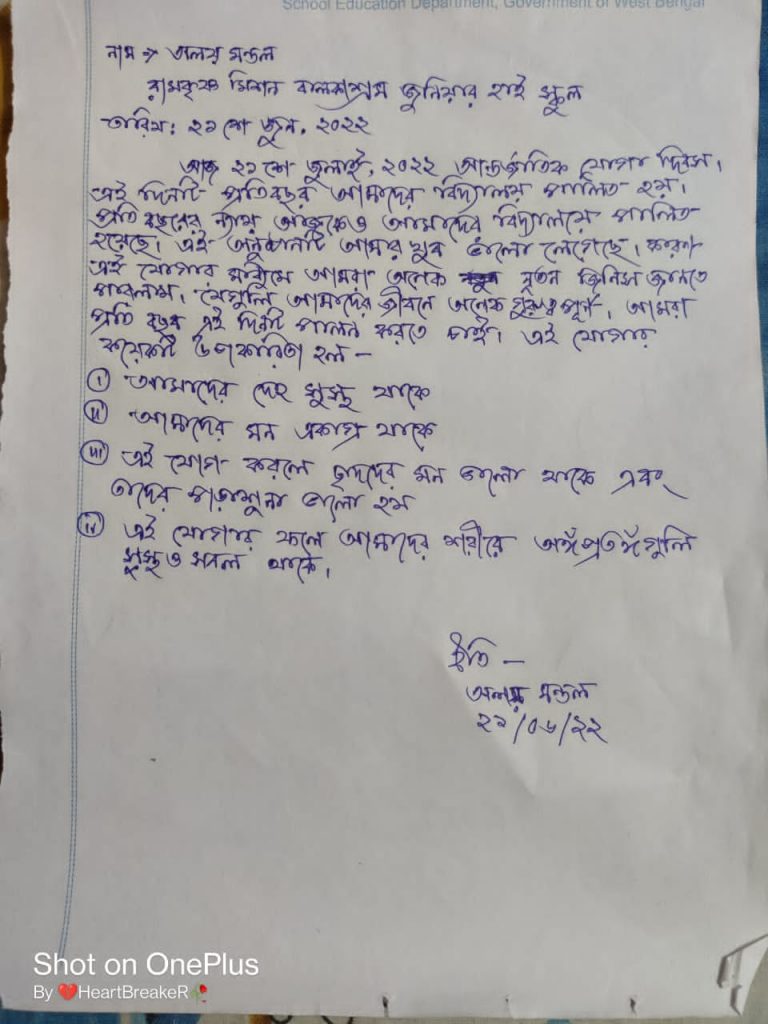 School Education Department, Government of West Bengal
নাম → অলয় মন্ডল
রামকৃষ্ণ মিশন বালকাশ্রম জুনিয়ার হাই স্কুল
তারিখ: ২১ শে জুন, ২০২২
আজ ২১ শে জুলাই, ২০২২ আন্তর্জাতিক যোগা দিবস।
এই দিনটি প্রতিবছর আমাদের বিদ্যালয় পালিত হয়।
প্রতি বছরের ন্যায় আজকেও আমাদের বিদ্যালয়ে পালিত
হয়েছে। এই অনুষ্ঠানটি আমার খুব ভালো লেগেছে। কারণ
এই যোগার মাধ্যমে আমরা অনেক নূতন জিনিস জানতে
পারলাম। যেগুলি আমাদের জীবনে অনেক গুরুত্বপূর্ন। আমরা
প্রতি বছর এই দিনটি পালন করতে চাই। এই যোগার
কয়েকটি উপকারিতা হল –
(i) আমাদের দেহ সুস্থ থাকে
(ii) আমাদের মন একাগ্র থাকে
(iii) এই যোগ করলে ছাত্রদের মন ভালো থাকে এবং
তাদের পড়াশুনা ভালো হয়
(iv) এই যোগার ফলে আমাদের শরীরে অঙ্গপ্রতঙ্গগুলি
সুস্থ ও সবল থাকে।
ইতি –
অলয় মন্ডল
২১/০৬/২২
Shot on OnePlus
By ❤️HeartBreakeR🥀